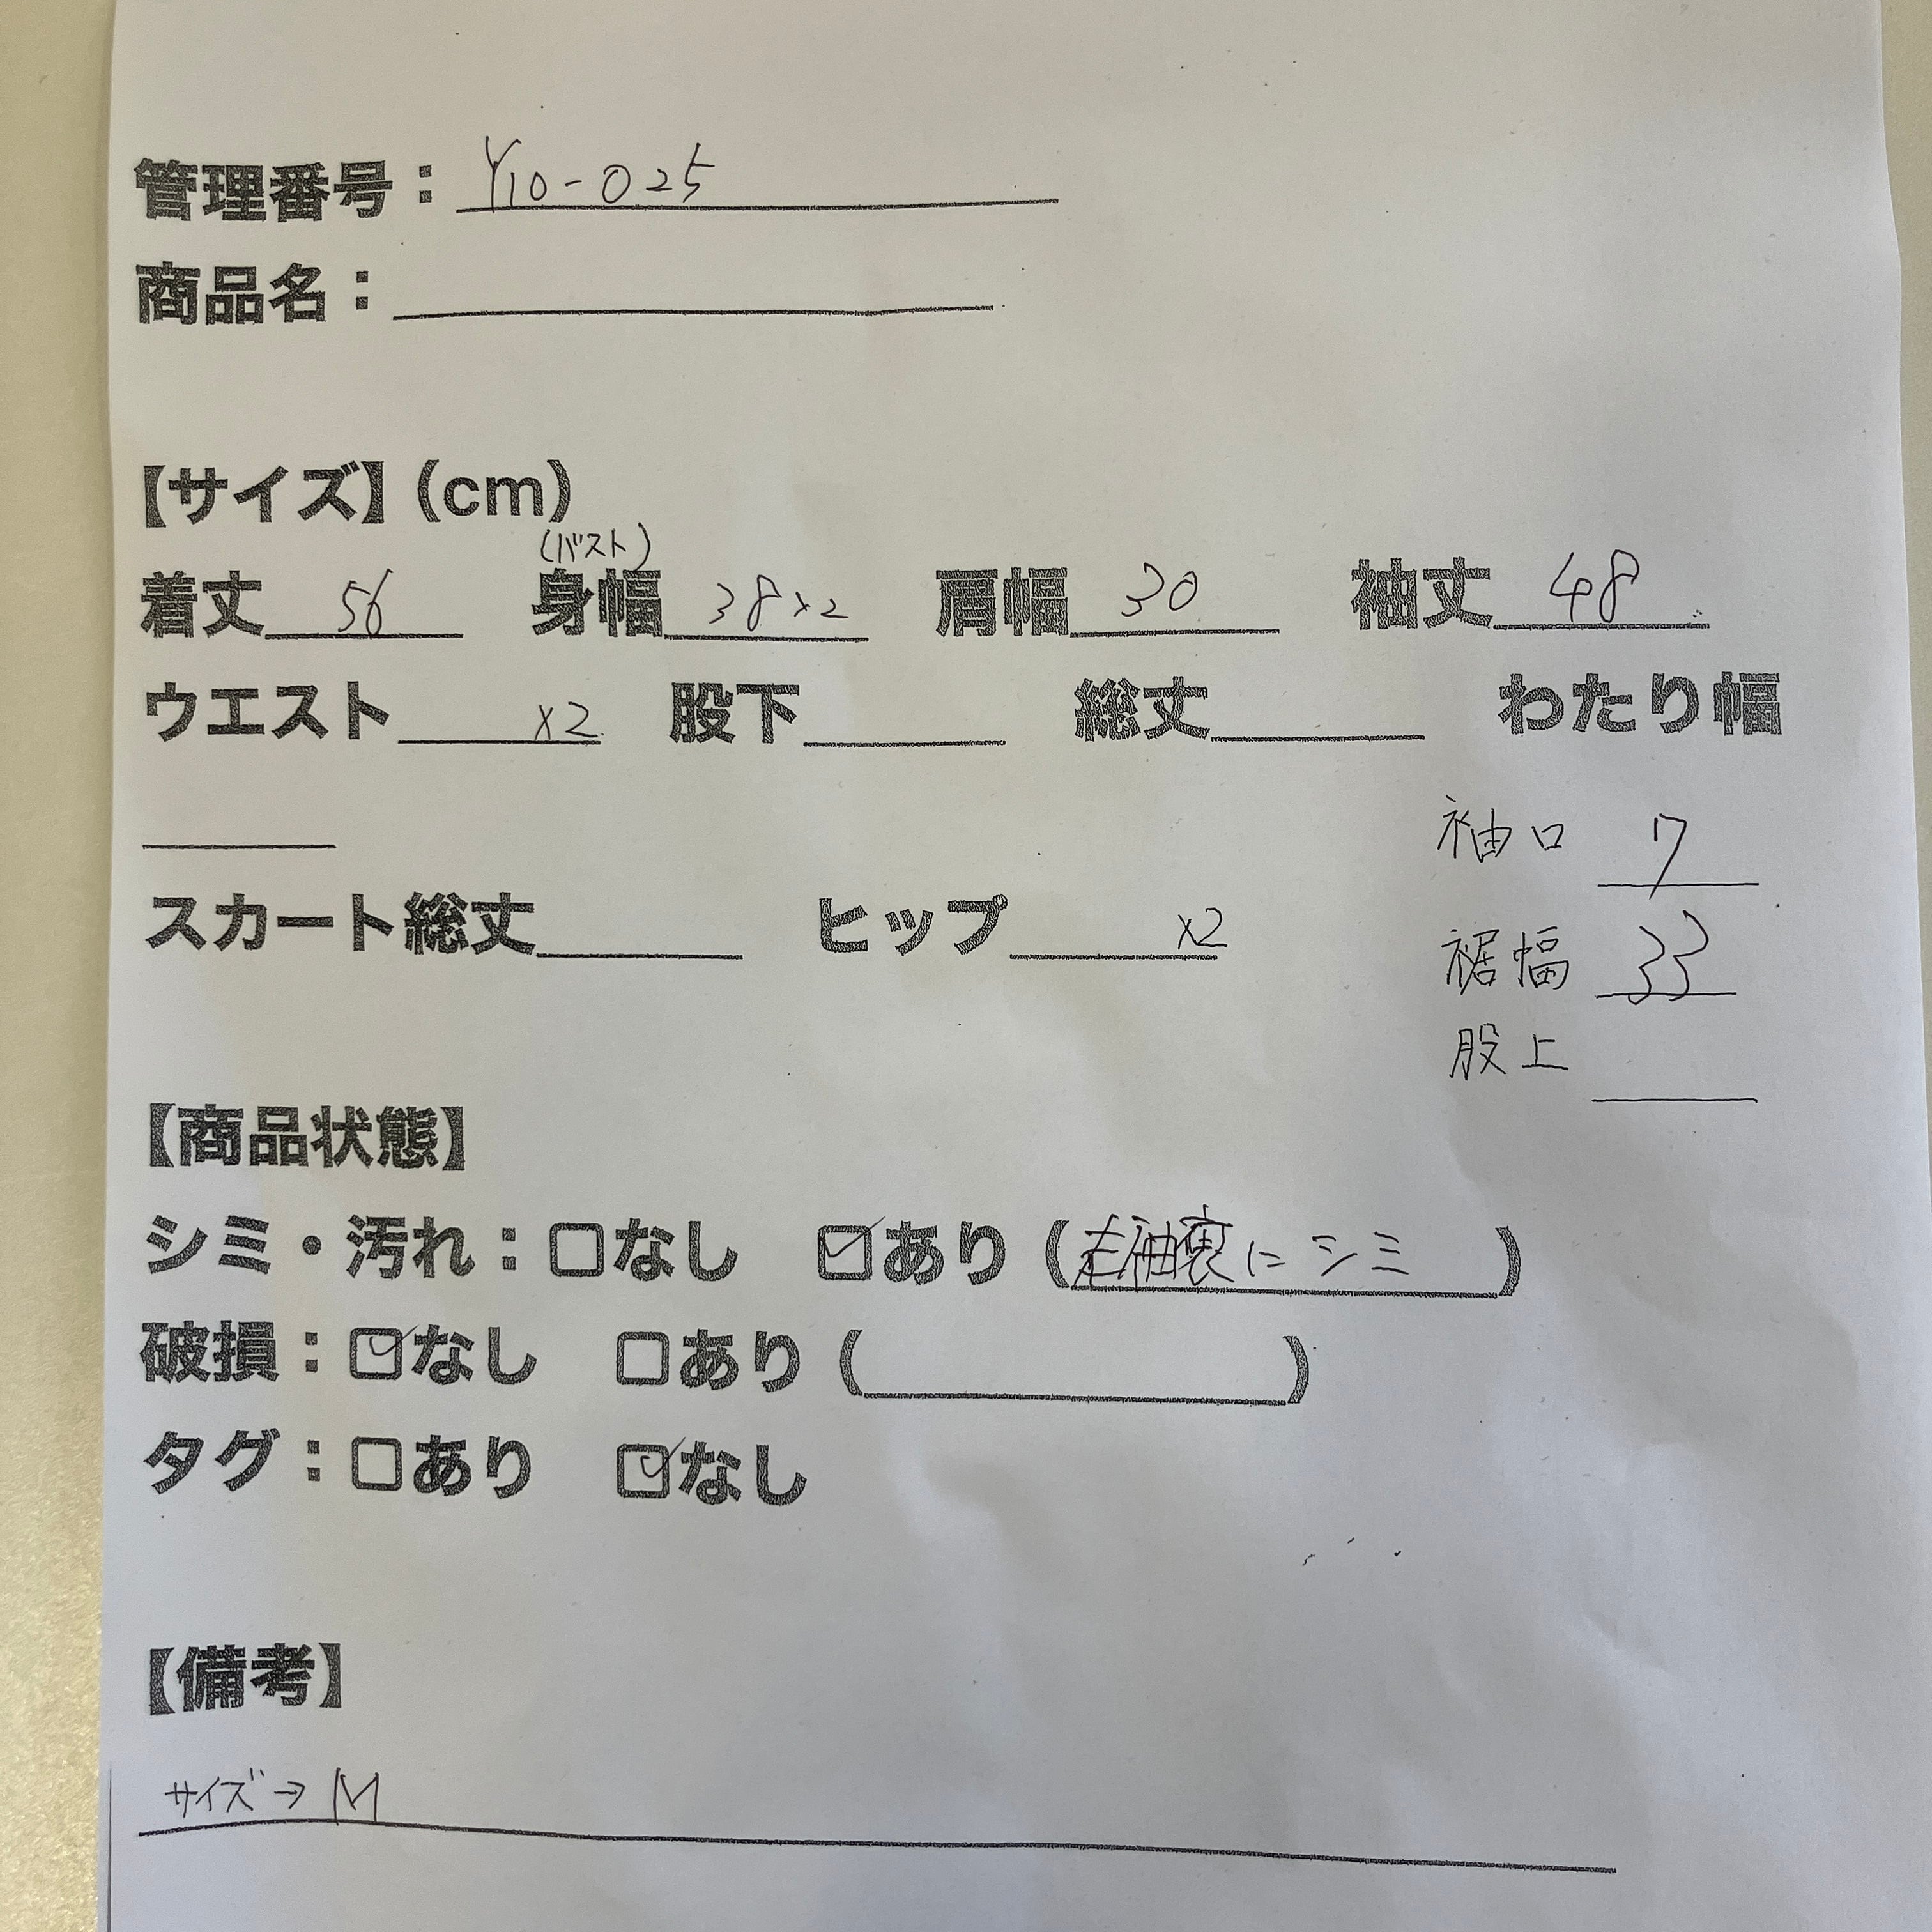 管理番号：Y10-025
商品名：
【サイズ】(cm)
(バスト)
着丈 56 身幅 38×2 肩幅 30 袖丈 48
ウエスト ×2 股下 総丈 わたり幅
袖口 7
スカート総丈 ヒップ ×2
裾幅 33
股上
【商品状態】
シミ・汚れ：□なし ☑あり (左袖裏にシミ)
破損：☑なし □あり ( )
タグ：□あり ☑なし
【備考】
サイズ→M